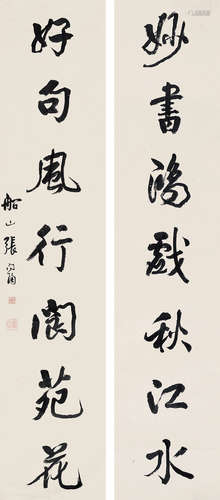 妙书鸿戏秋江水
好句風行閬苑花
船山張問陶